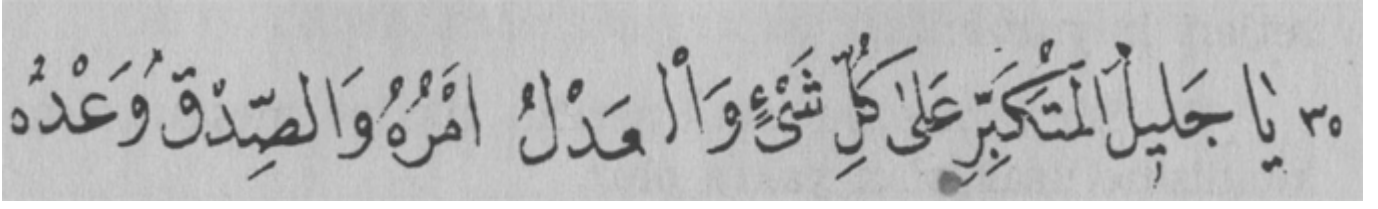 ٣٥ يَا جَلِيلُ الْمُتَكَبِّرِ عَلىٰ كُلِّ شَىْءٍ وَالْعَدْلُ امْرُهُ وَالصِّدْقُ وَعْدُهُ